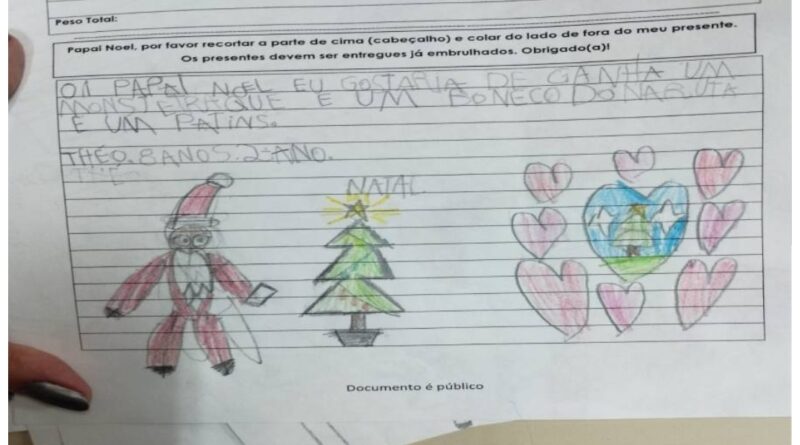 Peso Total:
Papai Noel, por favor recortar a parte de cima (cabeçalho) e colar do lado de fora do meu presente.
Os presentes devem ser entregues já embrulhados. Obrigado(a)!
OI PAPAI NOEL EU GOSTARIA DE GANHA UM
E UM BONECO DO NARUTA
E UM PATINS.
THEO. 8 ANOS. 2º ANO.
NATAL
Documento é público